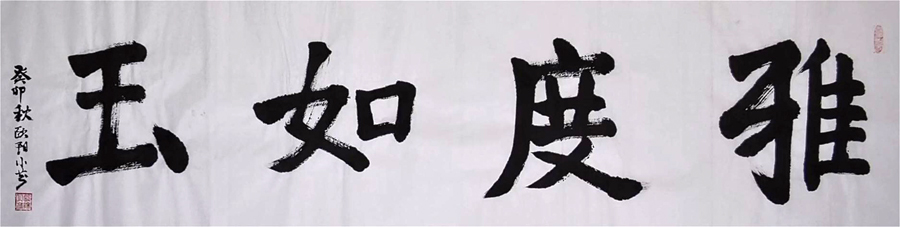 雅度如玉
癸卯秋欧阳小艺